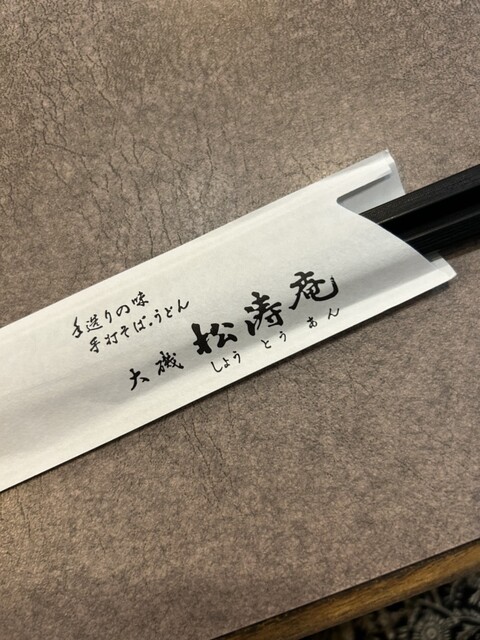 手造りの味
手打そば・うどん
大磯 松涛庵
しょうとうあん